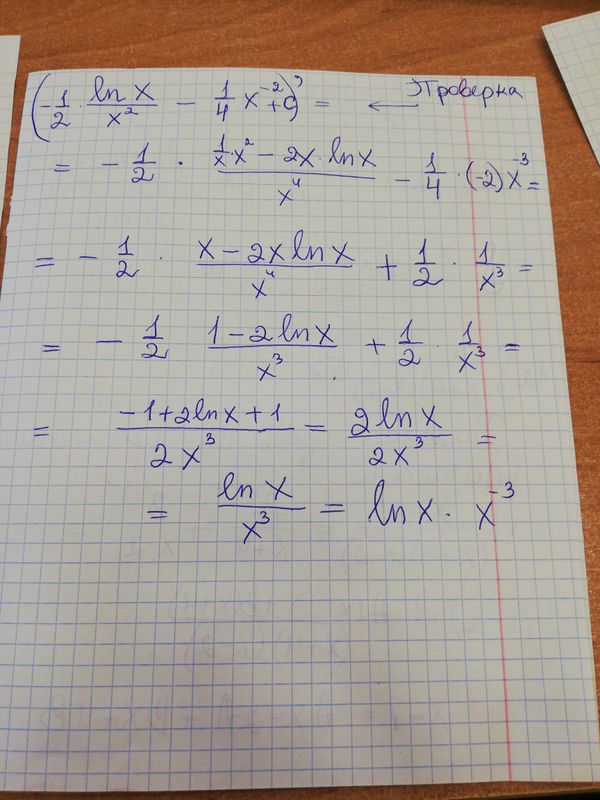 (-1/2 · ln x/x² - 1/4 x⁻² + C)' = ← Проверка
= - 1/2 · (1/x · x² - 2x · ln x)/x⁴ - 1/4 · (-2) x⁻³ =
= - 1/2 · (x - 2x ln x)/x⁴ + 1/2 · 1/x³ =
= - 1/2 (1 - 2 ln x)/x³ + 1/2 · 1/x³ =
= (-1 + 2 ln x + 1)/2x³ = 2 ln x/2x³ =
= ln x/x³ = ln x · x⁻³